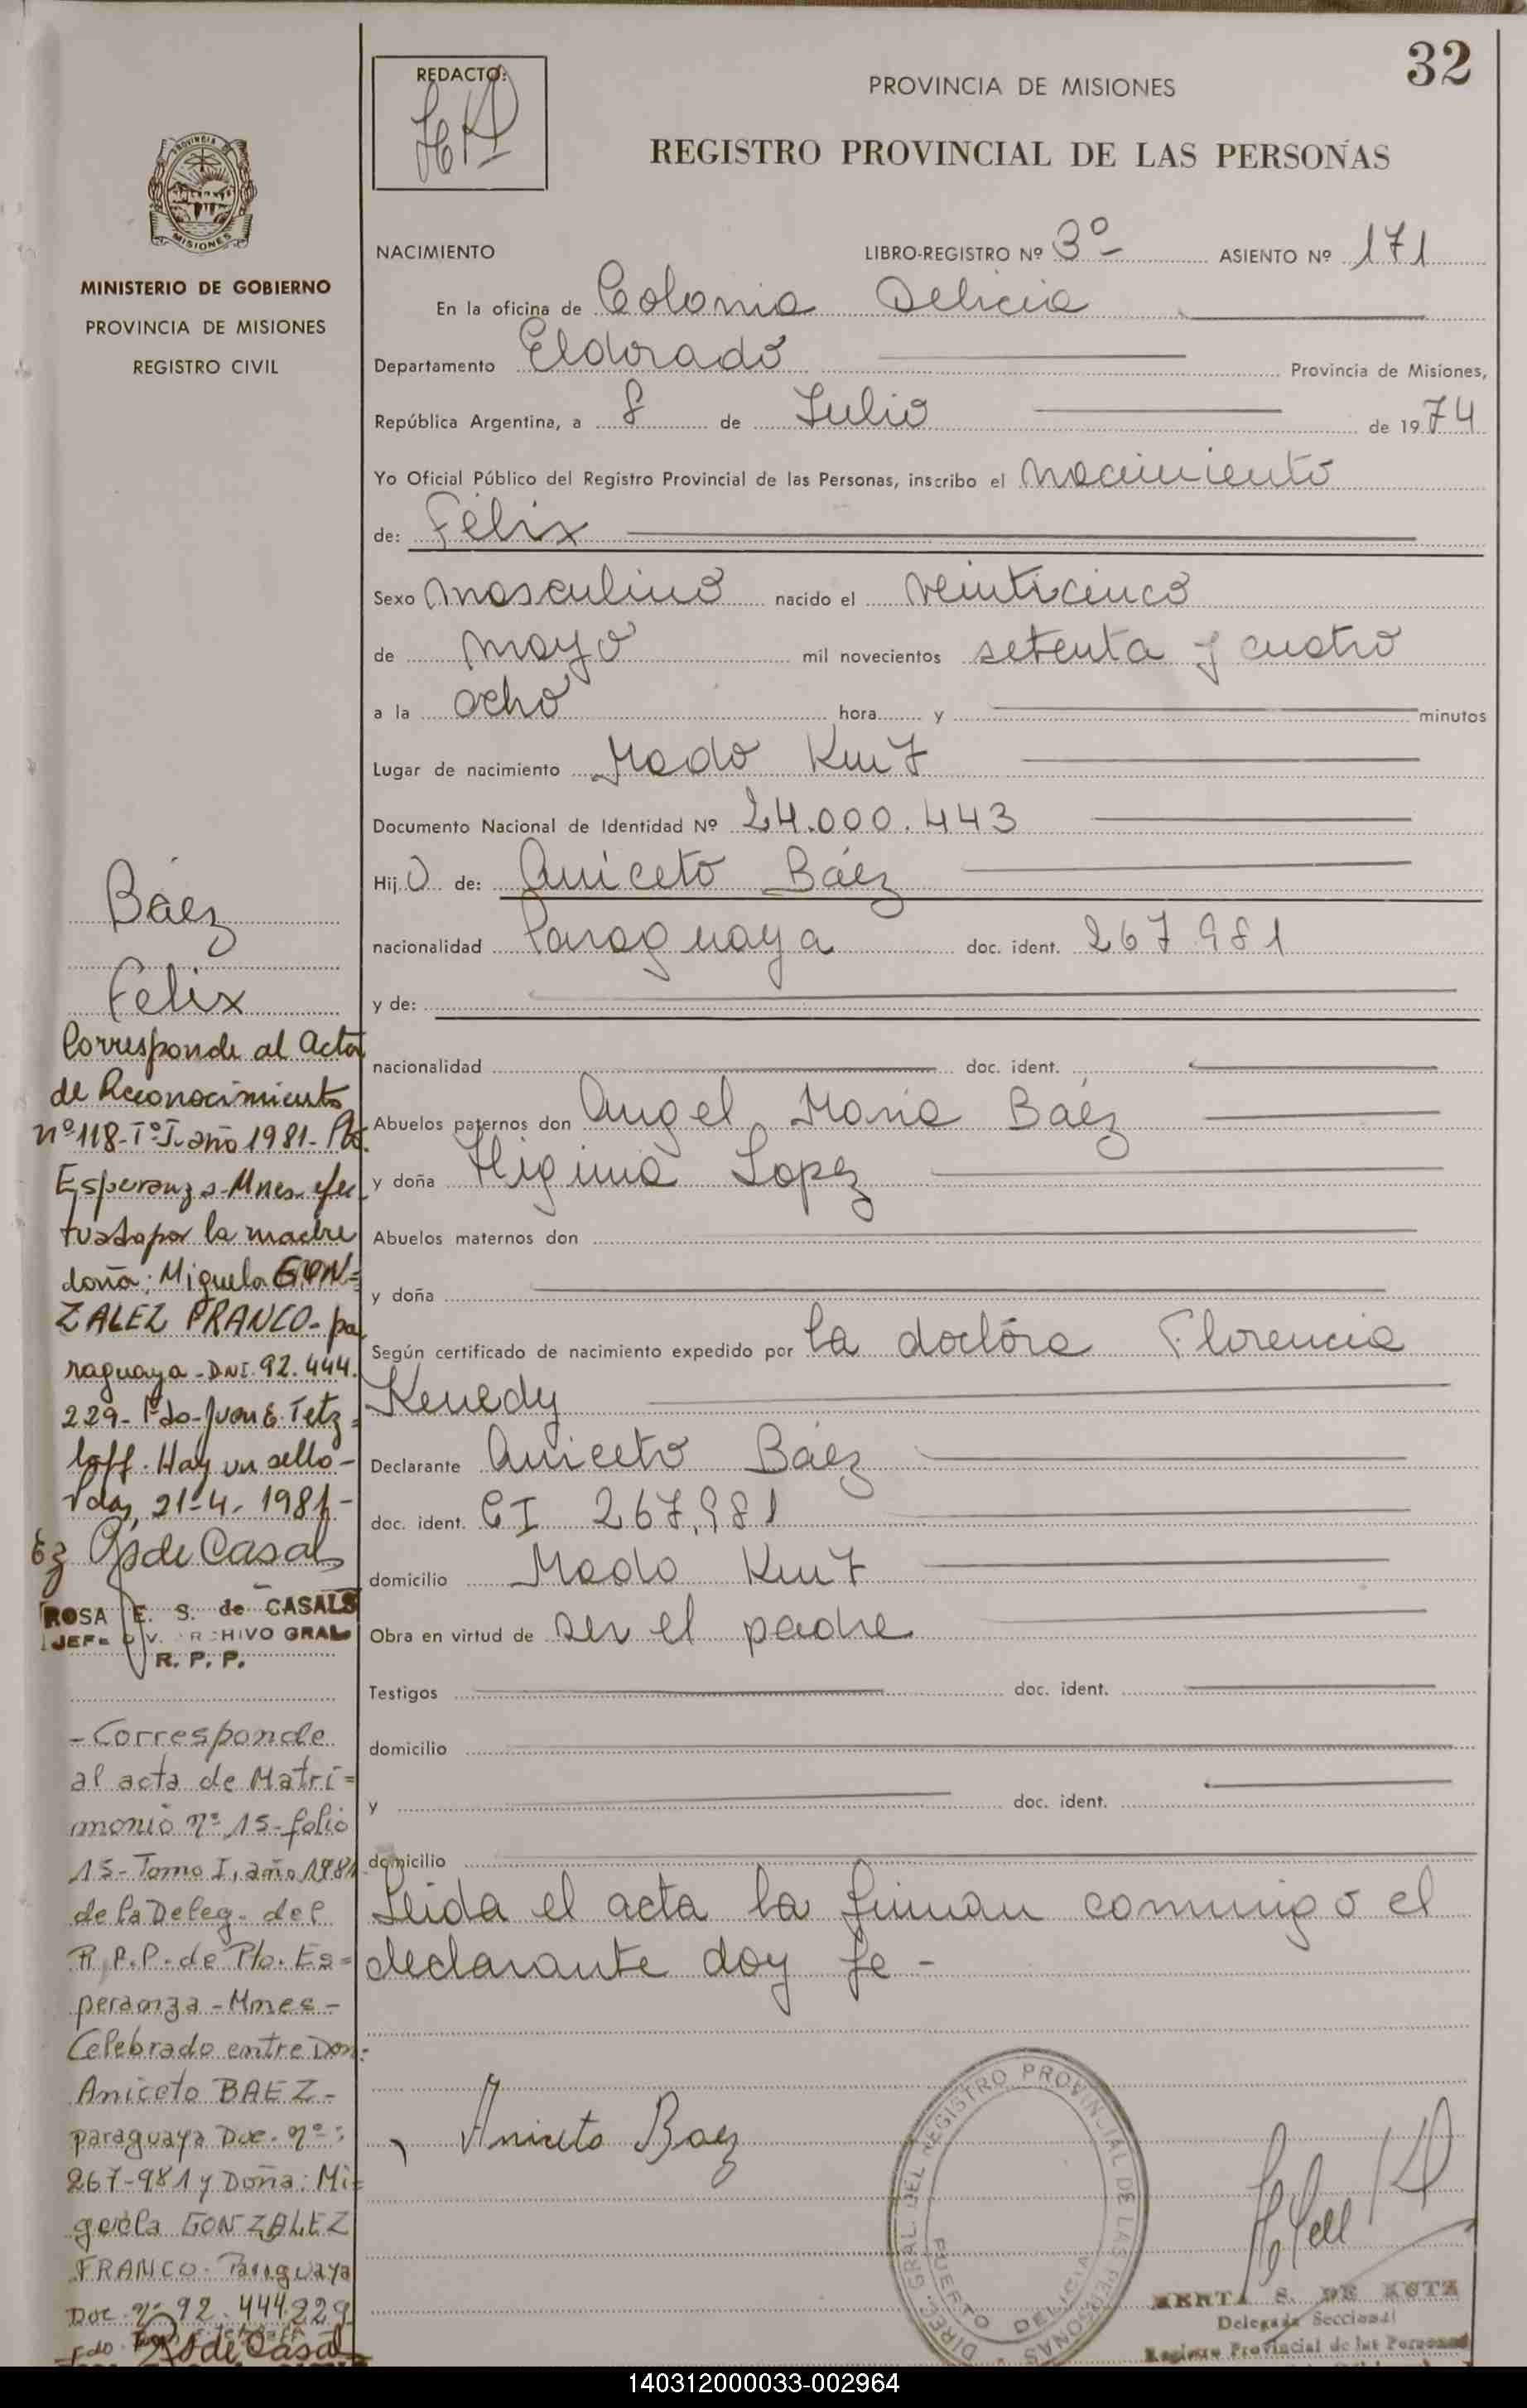 32
REDACTO:
PROVINCIA DE MISIONES
REGISTRO PROVINCIAL DE LAS PERSONAS
PROVINCIA DE
MISIONES
MINISTERIO DE GOBIERNO
PROVINCIA DE MISIONES
REGISTRO CIVIL
NACIMIENTO LIBRO-REGISTRO Nº 3º ASIENTO Nº 171
En la oficina de Colonia Delicia
Departamento Eldorado Provincia de Misiones,
República Argentina, a 8 de Julio de 1974
Yo Oficial Público del Registro Provincial de las Personas, inscribo el nacimiento
de: Félix
Sexo masculino nacido el veinticinco
de mayo mil novecientos setenta y cuatro
a la ocho hora y minutos
Lugar de nacimiento Mado Km 7
Documento Nacional de Identidad Nº 24.000.443
Hijo de: Aniceto Báez
nacionalidad Paraguaya doc. ident. 267.981
y de:
nacionalidad doc. ident.
Abuelos paternos don Angel María Báez
y doña Higinia Lopez
Abuelos maternos don
y doña
Según certificado de nacimiento expedido por la doctóra Florencia
Kenedy
Declarante Aniceto Báez
doc. ident. CI 267.981
domicilio Mado Km 7
Obra en virtud de ser el padre
Testigos doc. ident.
domicilio
y doc. ident.
domicilio
Leida el acta la firman conmigo el
declarante doy fe -
Aniceto Baez
DIREC. GRAL. DEL REGISTRO PROVINCIAL DE LAS PERSONAS
PUERTO DELICIA
Delegada Seccional
Registro Provincial de las Personas
Báez
Felix
Corresponde al Acta
de Reconocimiento
nº 118-Tº I-año 1981-Pto.
Esperanza-Mnes-efec
tuada por la madre
doña: Miguela GON=
ZALEZ FRANCO-pa
raguaya-DNI.92.444.
229-Fdo-Juan E. Tetz=
laff. Hay un sello-
Pdas, 21-4-1981-
RS de Casals
ROSA E. S. de CASALS
JEFE DIV. ARCHIVO GRAL
R. P. P.
-Corresponde
al acta de Matri=
monio nº 15-folio
15-Tomo I, año 1981
de la Deleg. del
R.P.P. de Pto. Es=
peranza-Mnes-
Celebrado entre Don:
Aniceto BAEZ-
paraguaya Doc. nº:
267-981 y Doña: Mi=
guela GONZALEZ
FRANCO-Paraguaya
Doc. nº 92.444.229
Fdo.
RS de Casals
140312000033-002964